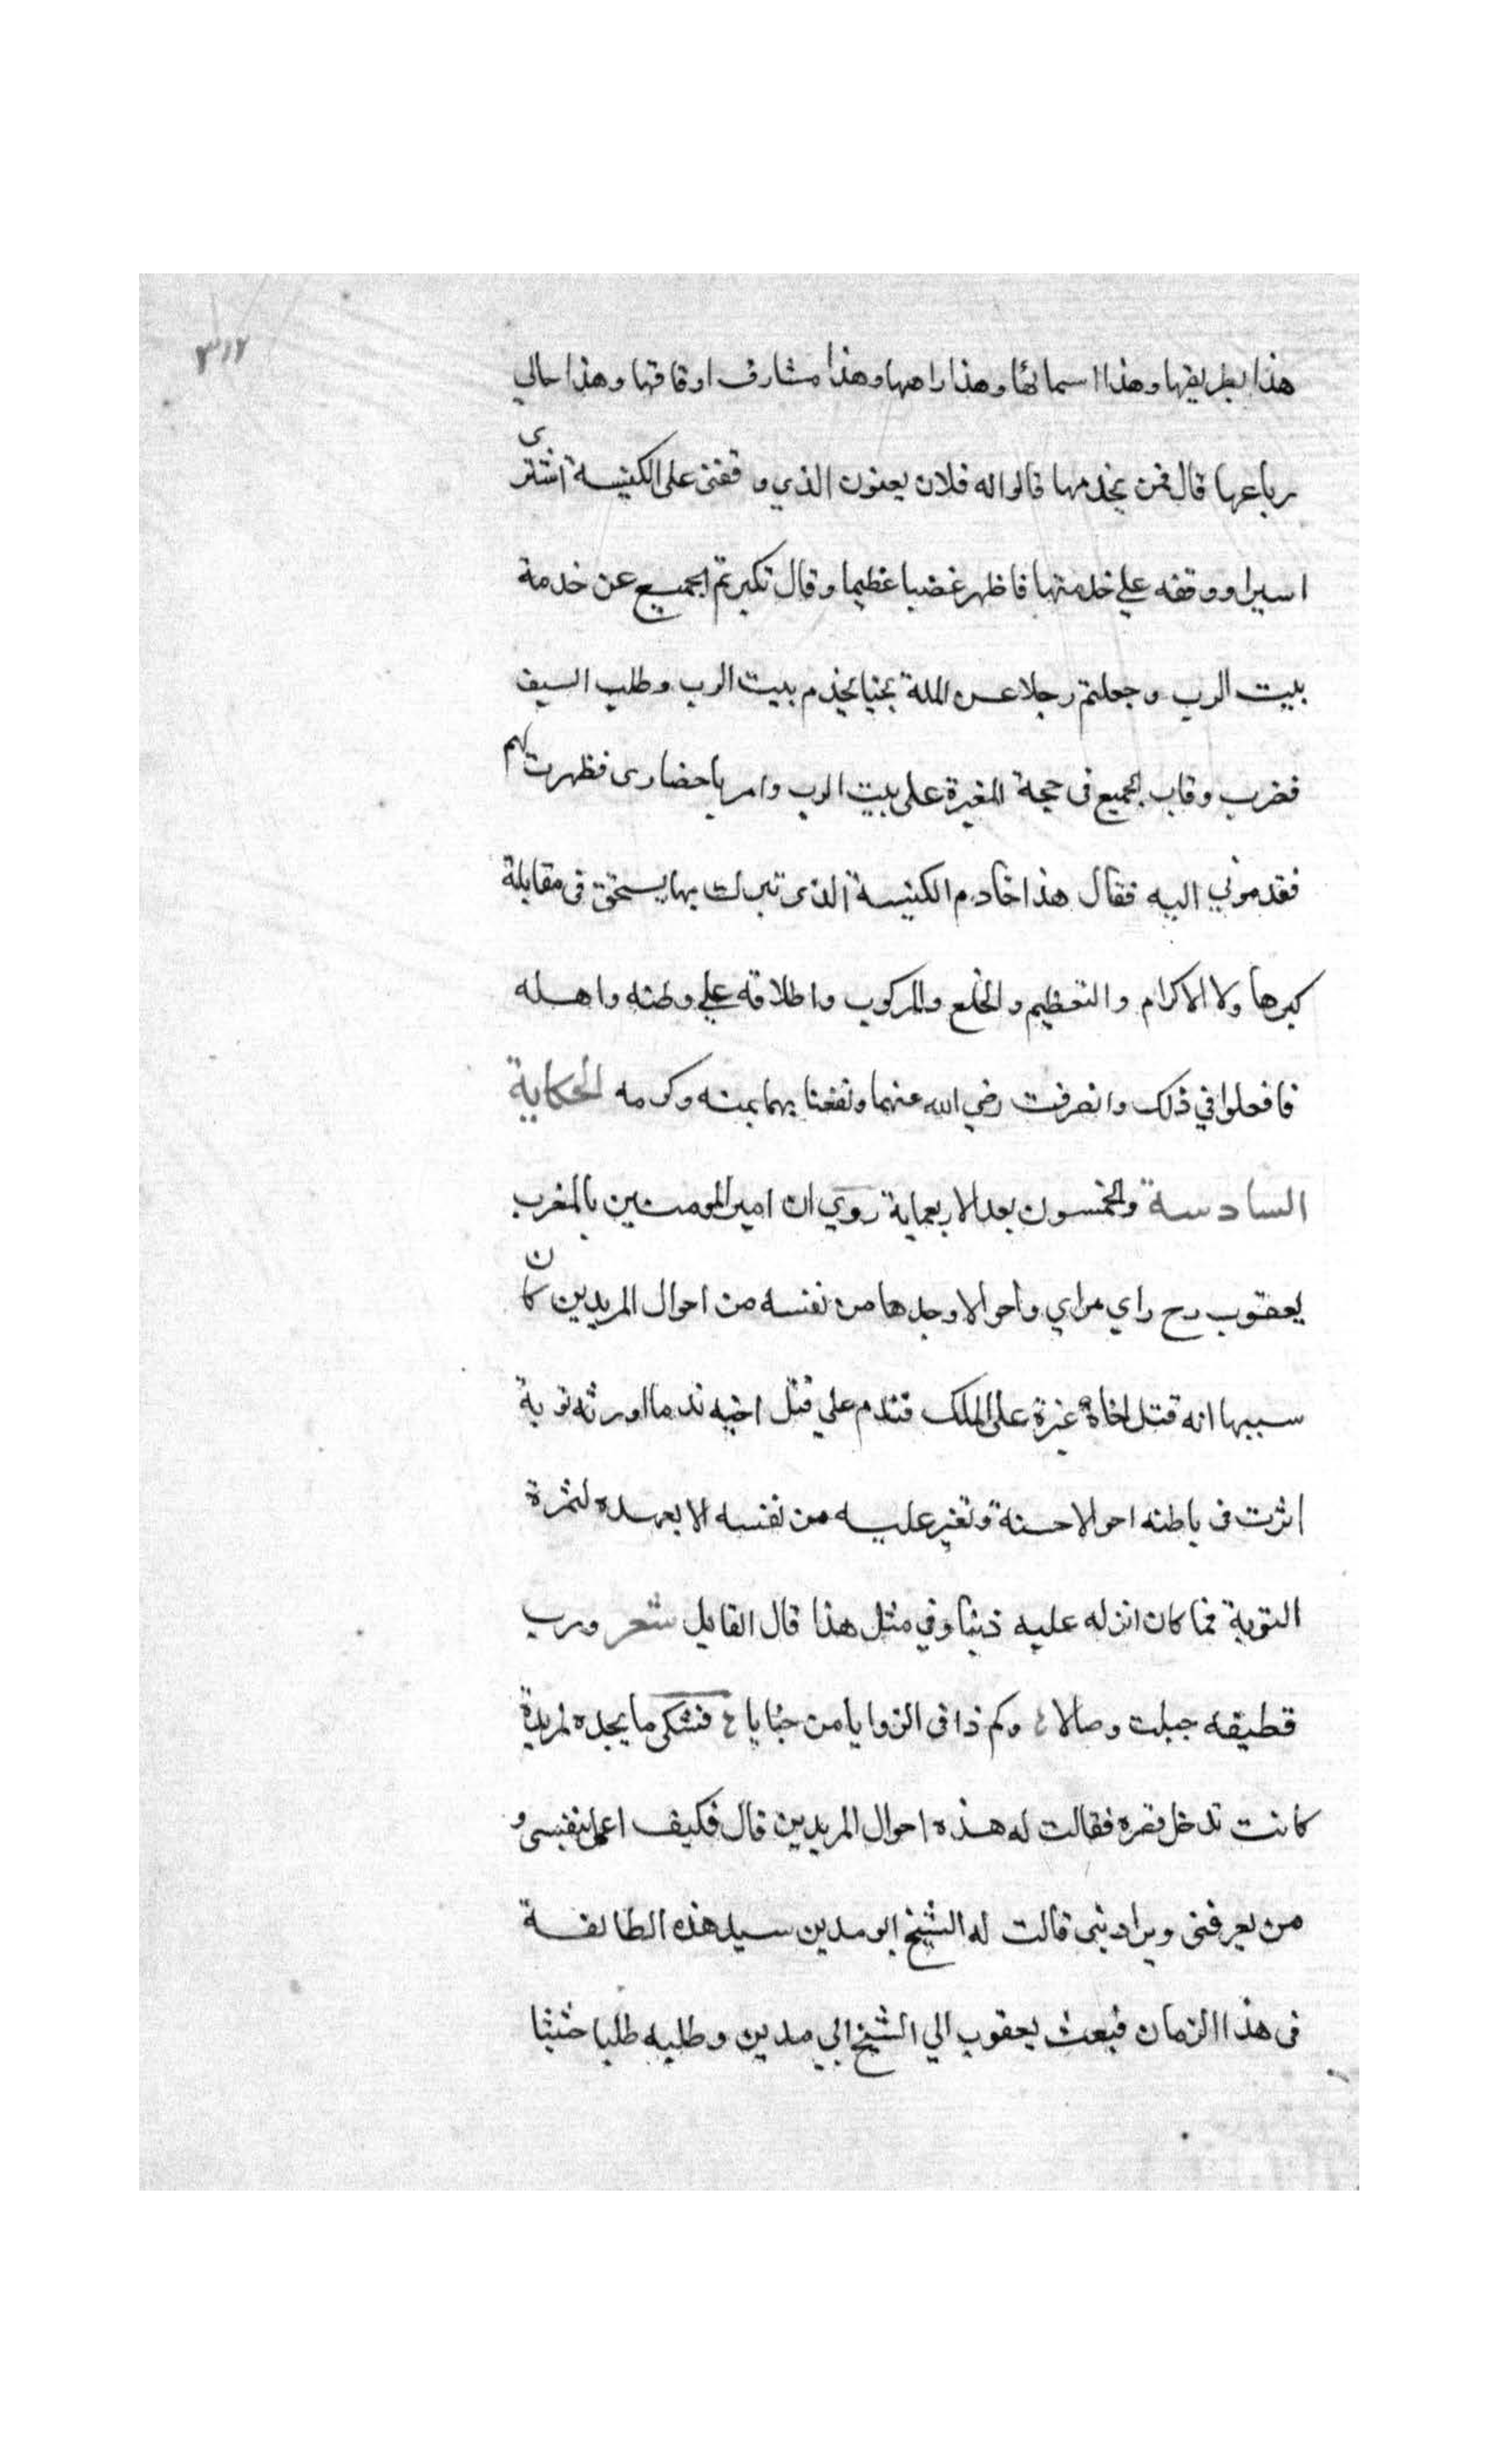 ٣١٢
هذا بطريقها وهذا اسمائها وهذا راهبها وهذا مشارف اوقافها وهذا حالي
رباعها قال فمن يخدمها قالوا له فلان يعنون الذي وقفني على الكنيسة اشترى
اسيرا ووقفه علي خدمتها فاظهر غضبا عظيما وقال تكبرتم الجميع عن خدمة
بيت الرب وجعلتم رجلا عن الملة يخدم بيت الرب وطلب السيف
فضرب وقاب الجميع في حجة الغيرة على بيت الرب وامر باحضارى فظهرت لهم
فقدموني اليه فقال هذا خادم الكنيسة الذى تبركت بها يستحق في مقابلة
كبرها ولا الاكرام والتعظيم والخلع والمركوب واطلاقه علي وطنه واهله
فافعلوا في ذلك وانصرفت رضي الله عنهما ونفعنا بهما بمنه وكرمه الحكاية
السادسة والخمسون بعد الاربعماية روي ان امير المومنين بالمغرب
يعقوب رح راي مراي واحوالا وجدها من نفسه من احوال المريدين كان
سببها انه قتل اخاه غيرة على الملك فتندم علي قتل اخيه ندما اورثه توبة
اثرت في باطنه احوالا حسنة وتغير عليه من نفسه الا بعهده لثمرة
التوبة فما كان انزله عليه ذنبا وفي مثل هذا قال القايل شعر ورب
قطيقه جبلت وصالا وكم ذا في الزوايا من خبايا فشكى ما يجده لمريدة
كانت تدخل قصره فقالت له هذه احوال المريدين قال فكيف اعمل بنفسي و
من يعرفني ويداويني قالت له الشيخ ابو مدين سيد هذه الطائفة
في هذا الزمان فبعث يعقوب الي الشيخ ابي مدين وطلبه طلبا حثيثا